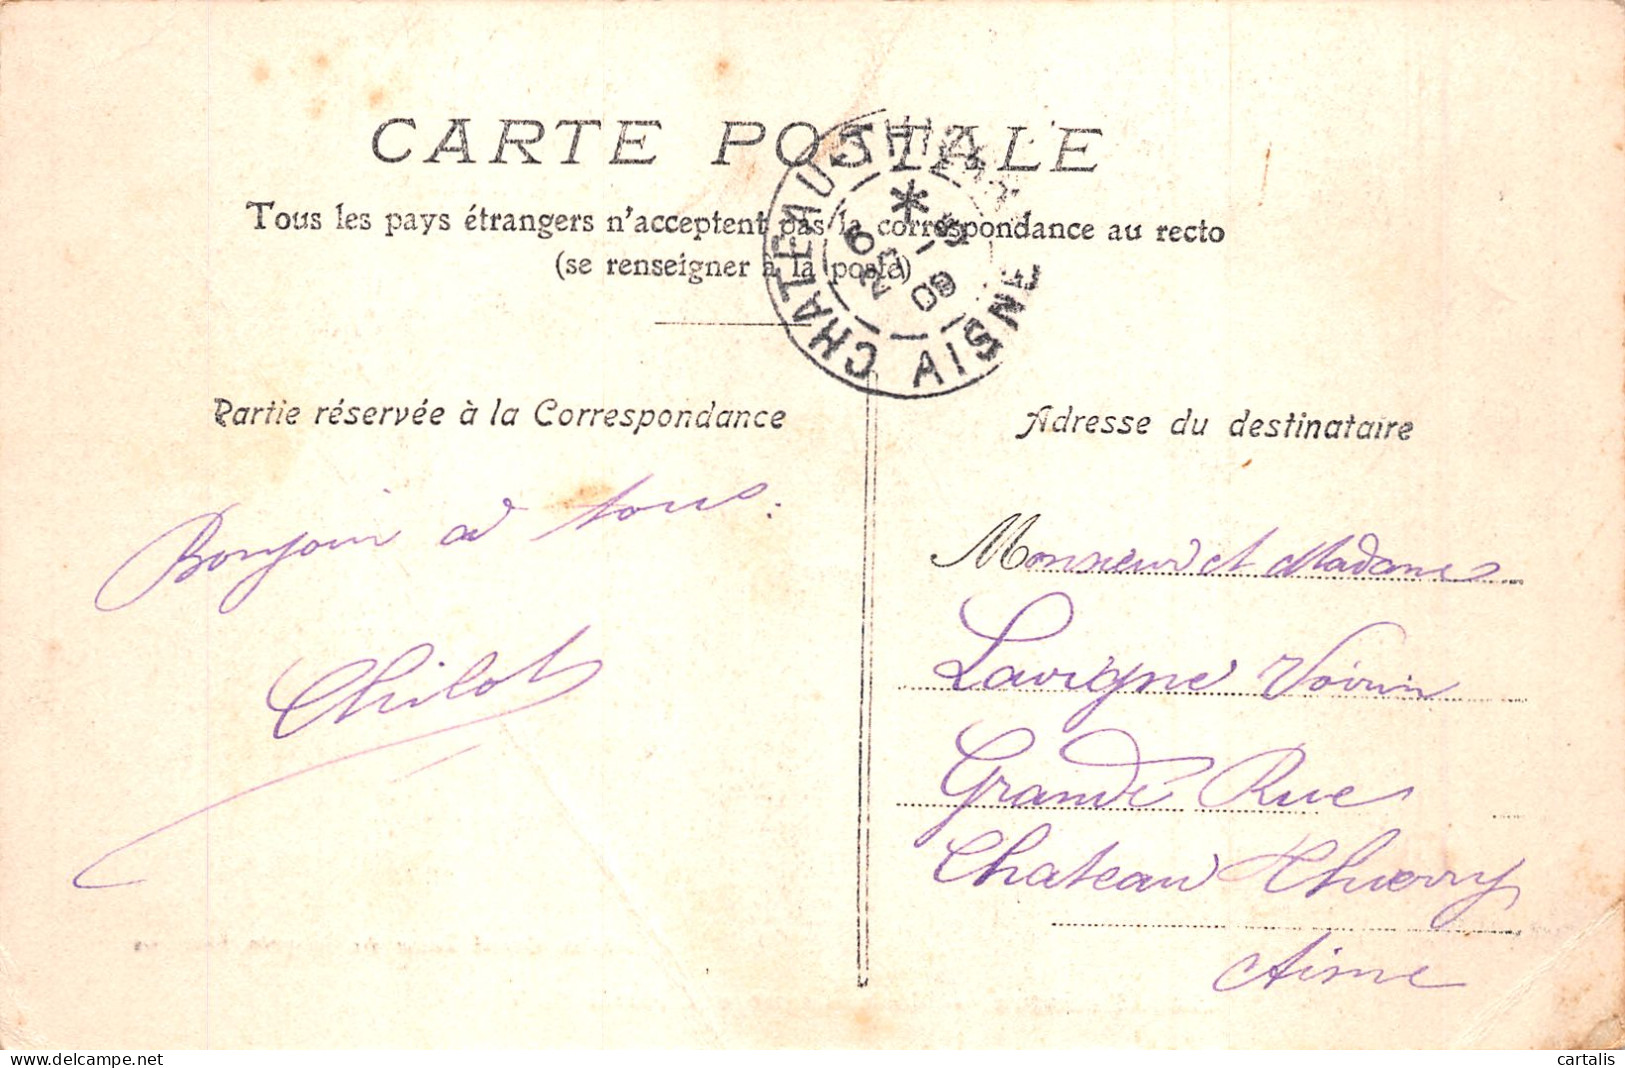 CARTE POSTALE
Tous les pays étrangers n'acceptent pas la correspondance au recto
(se renseigner à la poste)
CHATEAU-THIERRY
AISNE
09
Partie réservée à la Correspondance
Adresse du destinataire
Bonjour à tous.
Chilot
Monsieur et Madame
Lavigne Voirin
Grande Rue
Chateau Thierry
Aisne
cartalis